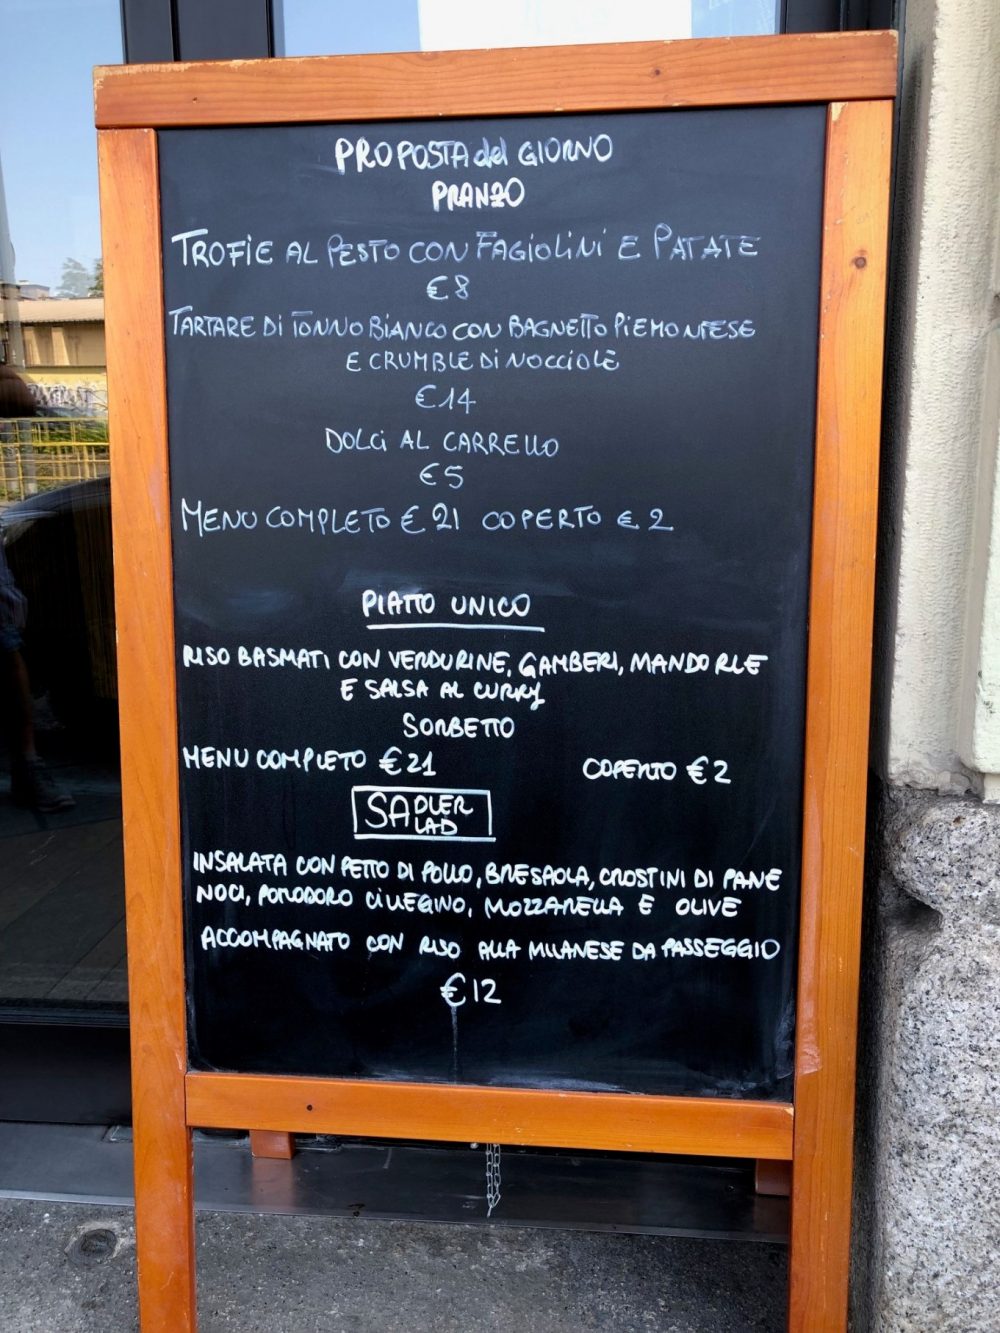 PROPOSTA del GIORNO
PRANZO
TROFIE AL PESTO CON FAGIOLINI E PATATE
€8
TARTARE DI TONNO BIANCO CON BAGNETTO PIEMONTESE
E CRUMBLE DI NOCCIOLE
€14
DOLCI AL CARRELLO
€5
MENU COMPLETO €21 COPERTO € 2
PIATTO UNICO
RISO BASMATI CON VERDURINE, GAMBERI, MANDORLE
E SALSA AL CURRY
SORBETTO
MENU COMPLETO €21 COPERTO €2
SADLER
SALAD
INSALATA CON PETTO DI POLLO, BRESAOLA, CROSTINI DI PANE
NOCI, POMODORO CILIEGINO, MOZZARELLA E OLIVE
ACCOMPAGNATO CON RISO ALLA MILANESE DA PASSEGGIO
€12